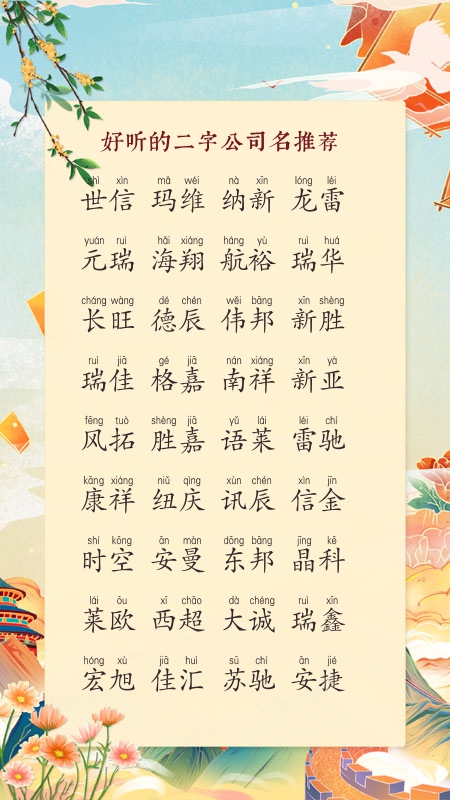 好听的二字公司名推荐
shì xìn mǎ wéi nà xīn lóng léi
世信 玛维 纳新 龙雷
yuán ruì hǎi xiáng háng yù ruì huá
元瑞 海翔 航裕 瑞华
cháng wàng dé chén wěi bāng xīn shèng
长旺 德辰 伟邦 新胜
ruì jiā gé jiā nán xiáng xīn yà
瑞佳 格嘉 南祥 新亚
fēng tuò shèng jiā yǔ lái léi chí
风拓 胜嘉 语莱 雷驰
kāng xiáng niǔ qìng xùn chén xìn jīn
康祥 纽庆 讯辰 信金
shí kōng ān màn dōng bāng jīng kē
时空 安曼 东邦 晶科
lái ōu xī chāo dà chéng ruì xīn
莱欧 西超 大诚 瑞鑫
hóng xù jiā huì sū chí ān jié
宏旭 佳汇 苏驰 安捷